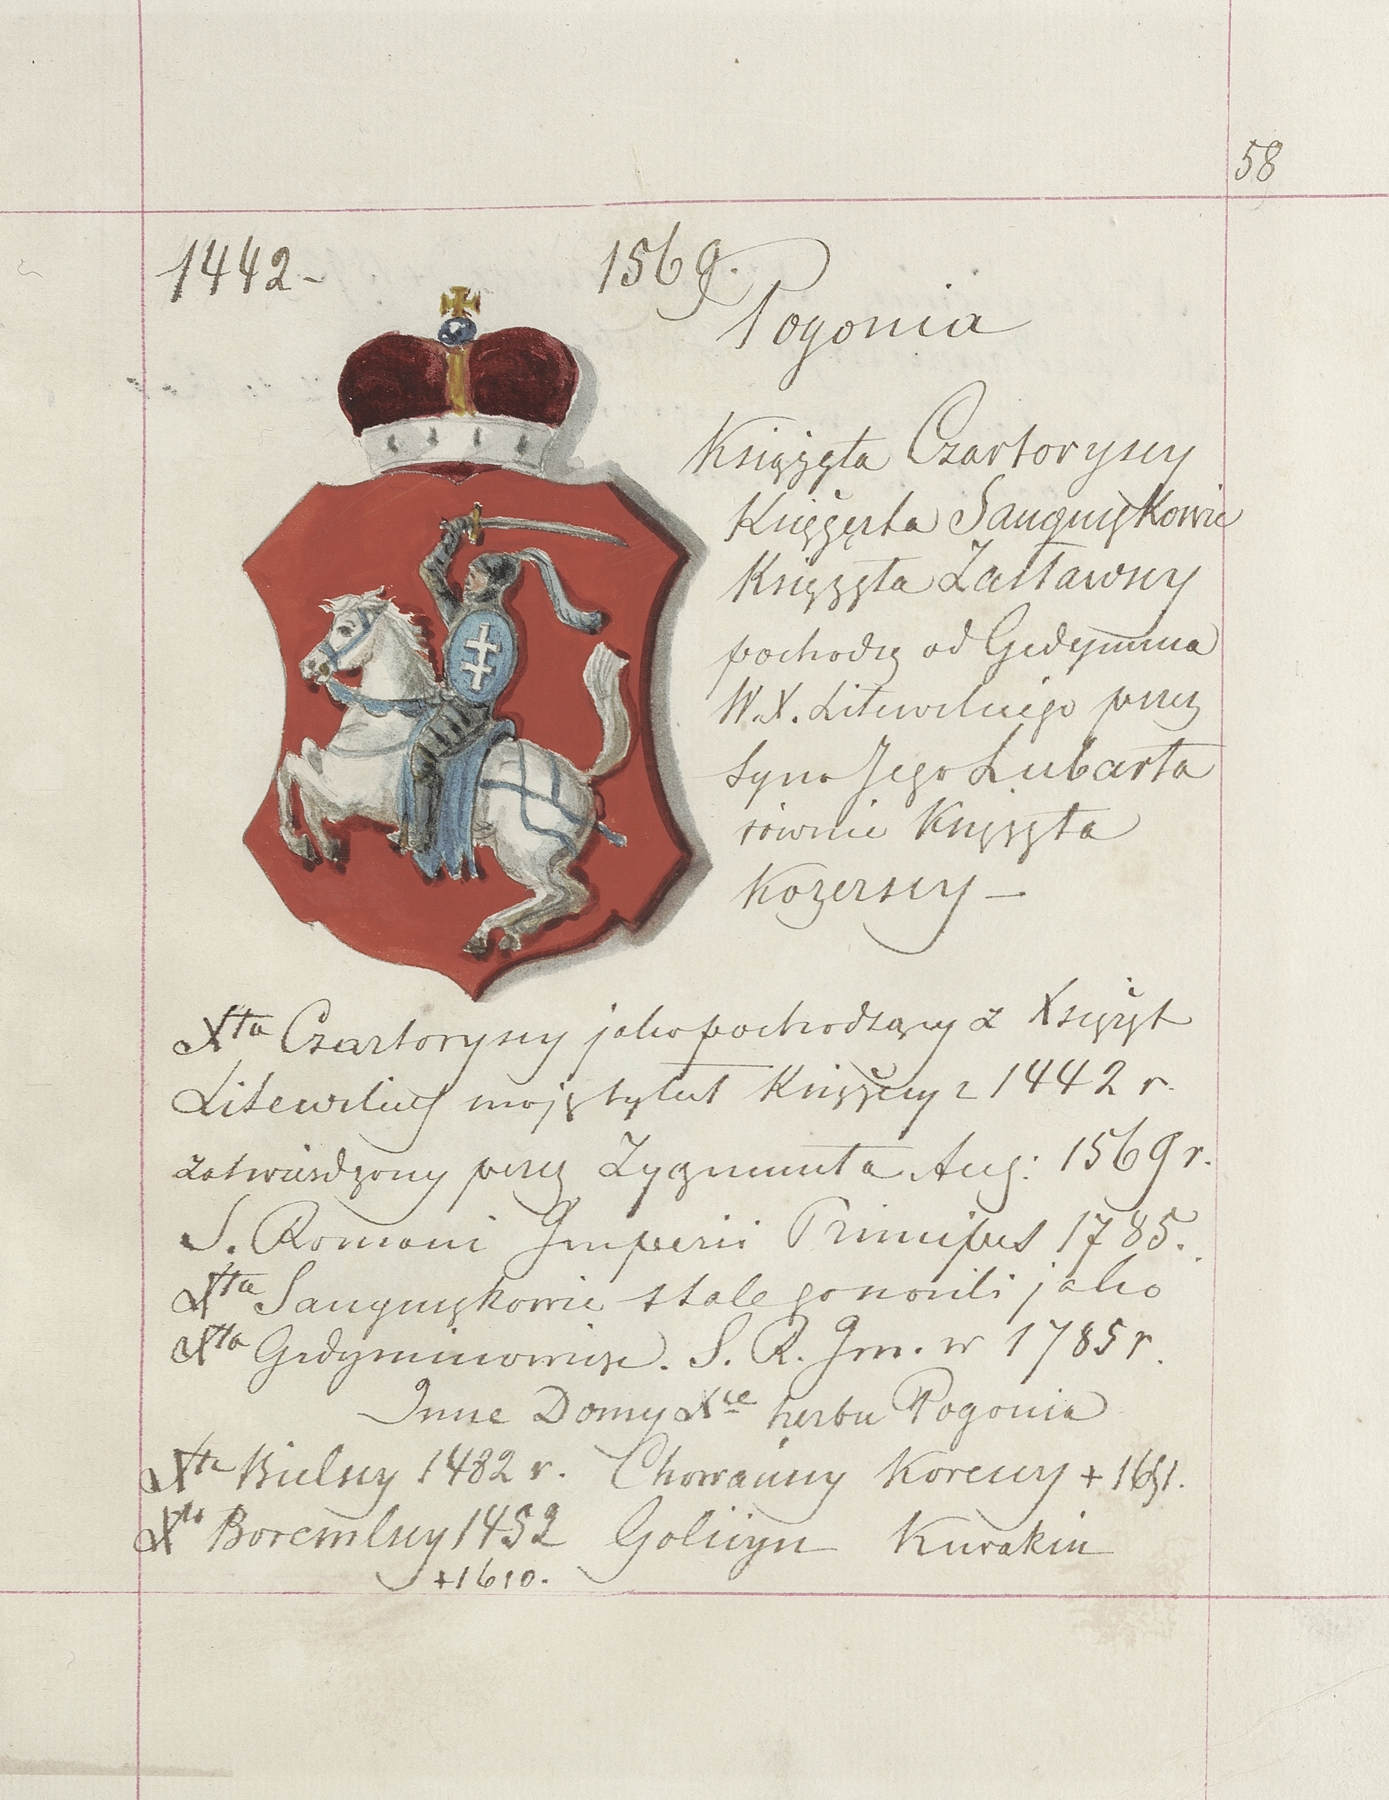 58
1442 - 1569.
Pogonia
Książęta Czartoryscy
Książęta Sanguszkowie
Książęta Zasławscy
pochodzą od Gedymina
W. X. Litewskiego przez
syna Jego Lubarta
równie Książęta
Kozerscy —
Xta Czartoryscy jako pochodzący z Książąt
Litewskich mają tytuł Książęcy z 1442 r.
zatwierdzony przez Zygmunta Aug: 1569 r.
S. Romani Imperii Princeps 1785.
Xta Sanguszkowie stale go nosili jako
Xta Gedyminowicze. S. R. Im. w 1785 r.
Inne Domy Xce herbu Pogonia
Xta Bielscy 1482 r. Chowańscy Koreccy + 1651.
Xta Boremlscy 1452 Golicyn Kurakin
+ 1610.